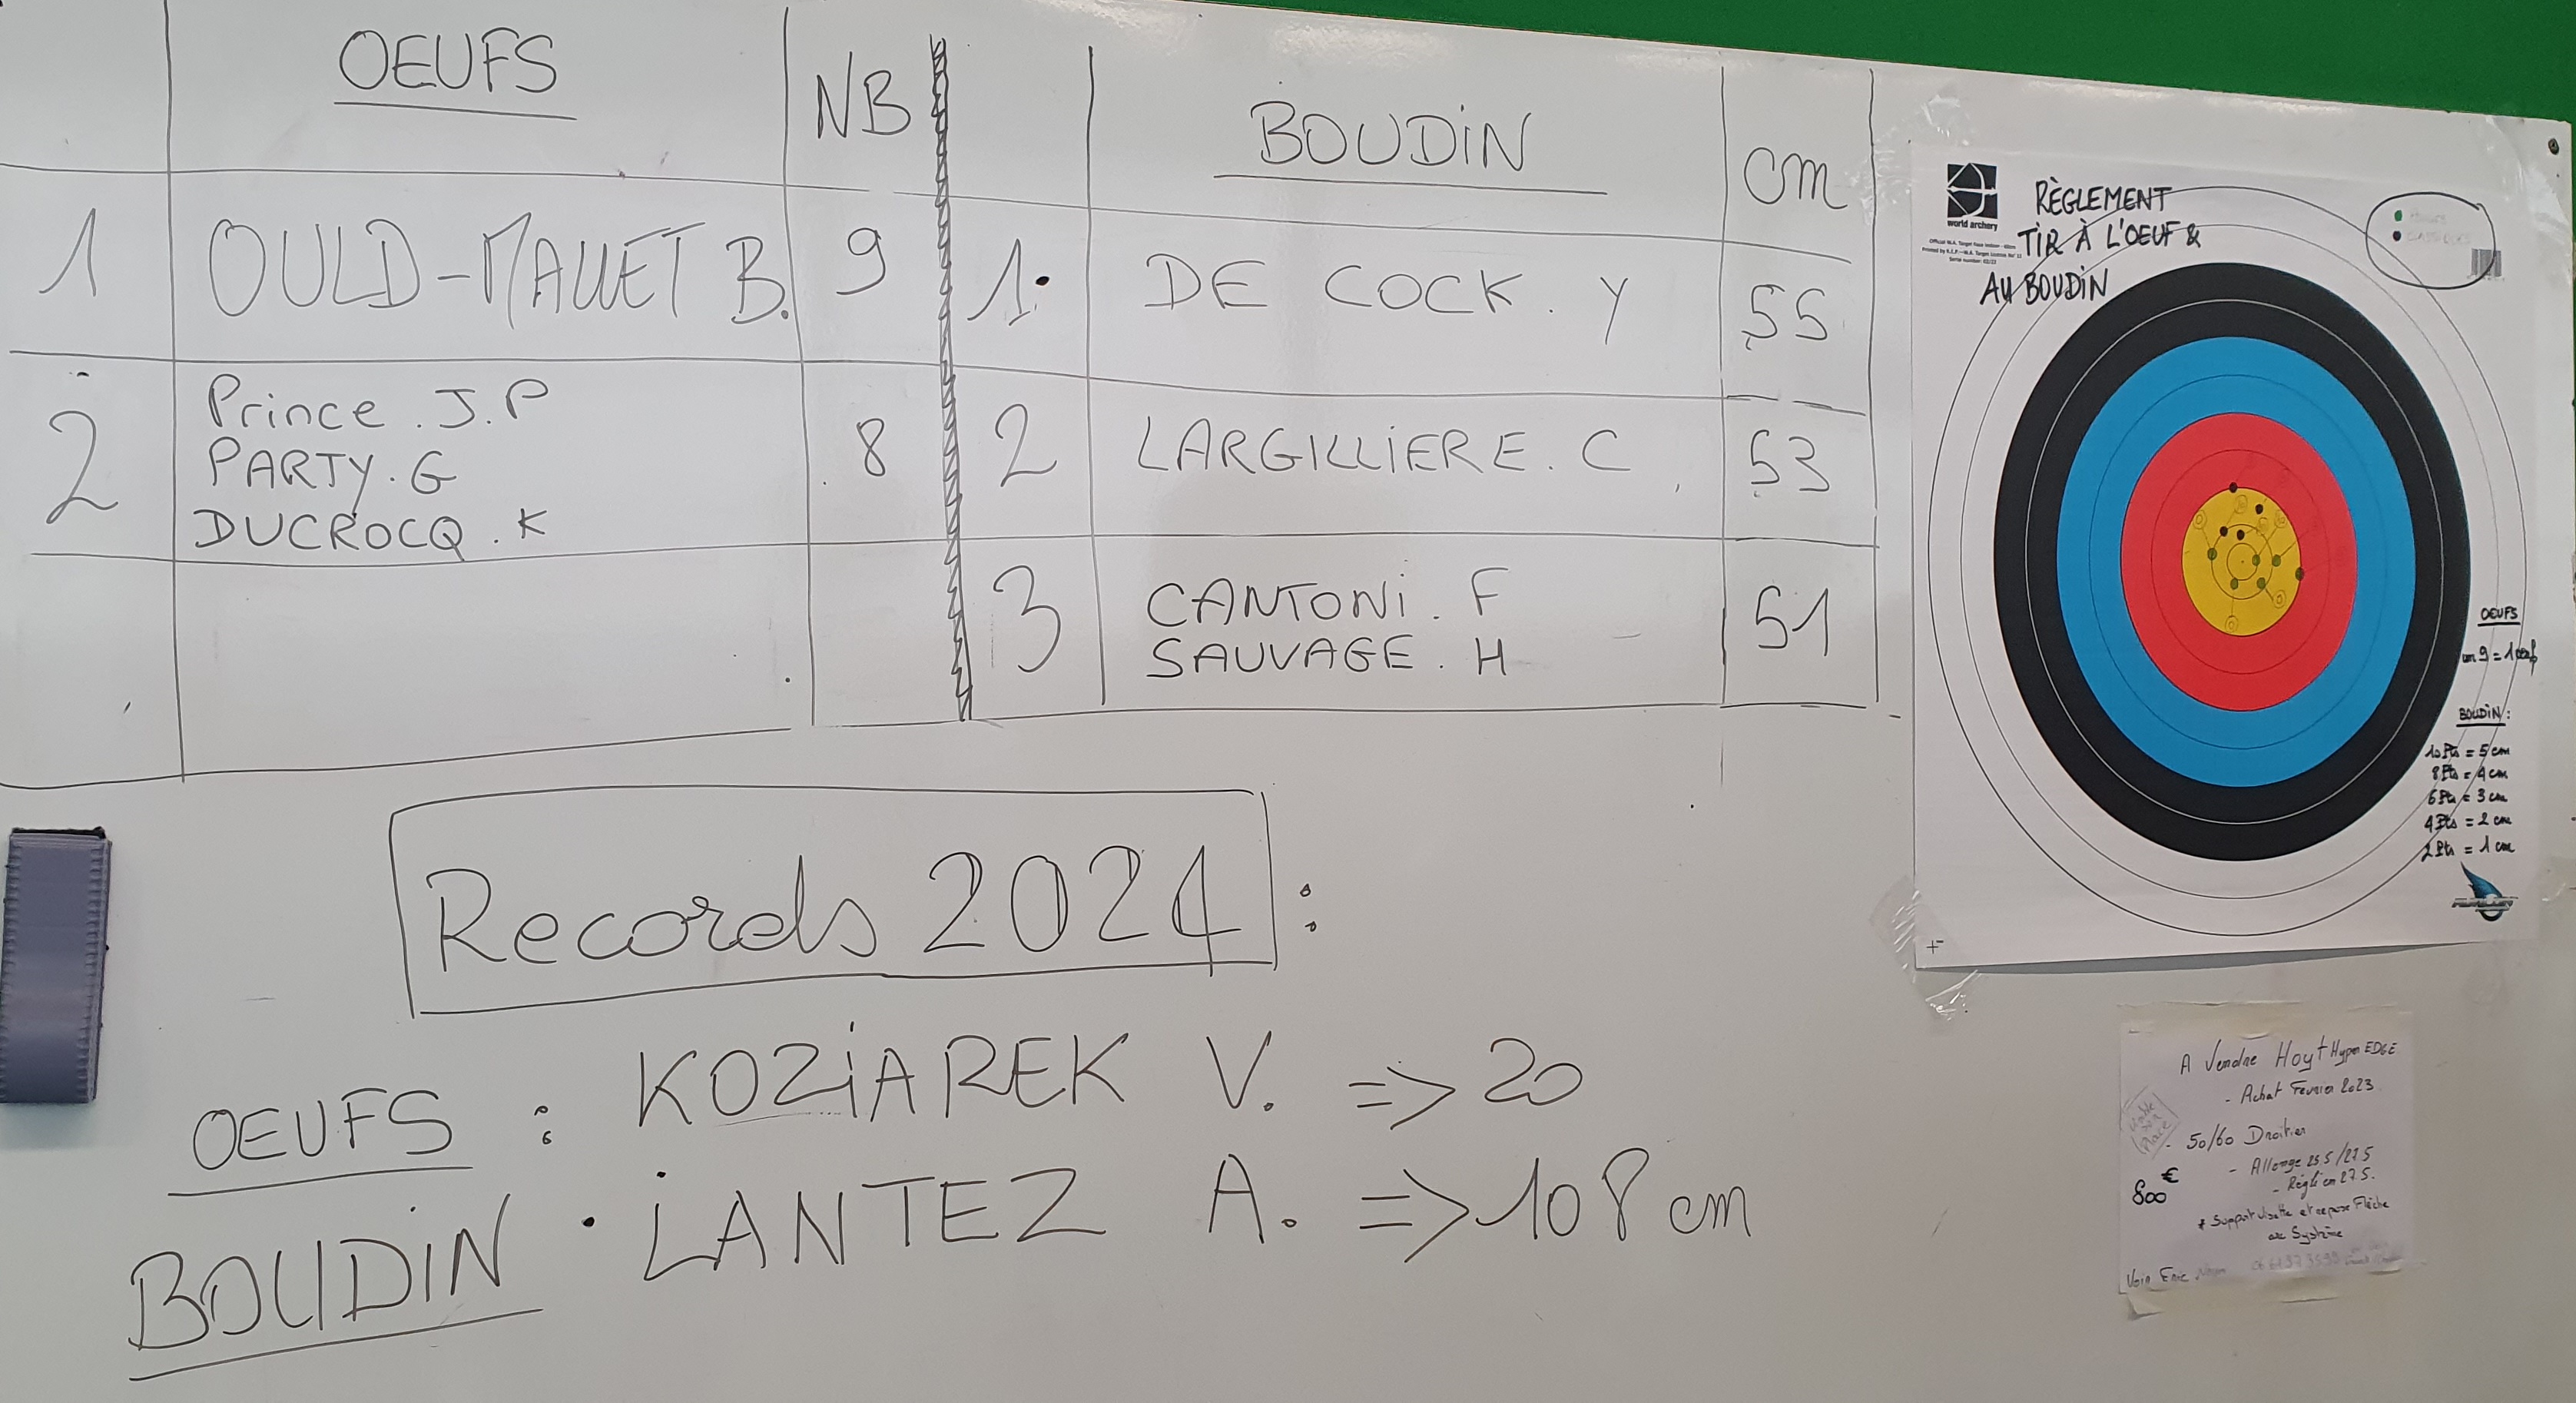 OEUFS
NB
1 OULD-MALLET B. 9
2 Prince. J.P
PARTY. G
DUCROCQ. K
8
BOUDIN
cm
1. DE COCK. Y 55
2 LARGILLIERE. C 53
3 CANTONI. F
SAUVAGE. H
51
Records 2024 :
OEUFS : KOZIAREK V. => 20
BOUDIN . LANTEZ A. => 108 cm
world archery
RÈGLEMENT
TIR À L'OEUF &
AU BOUDIN
OEUFS
un 9 = 1 oeuf
BOUDIN :
10 Pts = 5 cm
8 Pts = 4 cm
6 Pts = 3 cm
4 Pts = 2 cm
2 Pts = 1 cm
A Vendre Hoyt Hyper EDGE
- Achat Fevrier 2023
- 50/60 Droitier
- Allonge 25.5/27.5
- Réglé en 27.5.
800 €
* Support visette et repose Flèche
Système
Voir Eric